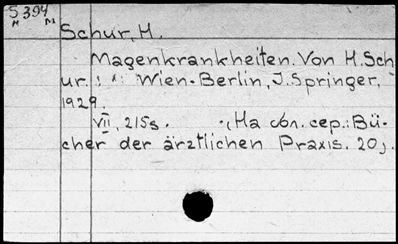 S 394
Schur, H.
Magenkrankheiten. Von H. Sch
ur. Wien-Berlin, J. Springer,
1929.
VII, 215s. (На обл. сер.: Bü-
cher der ärztlichen Praxis. 20).